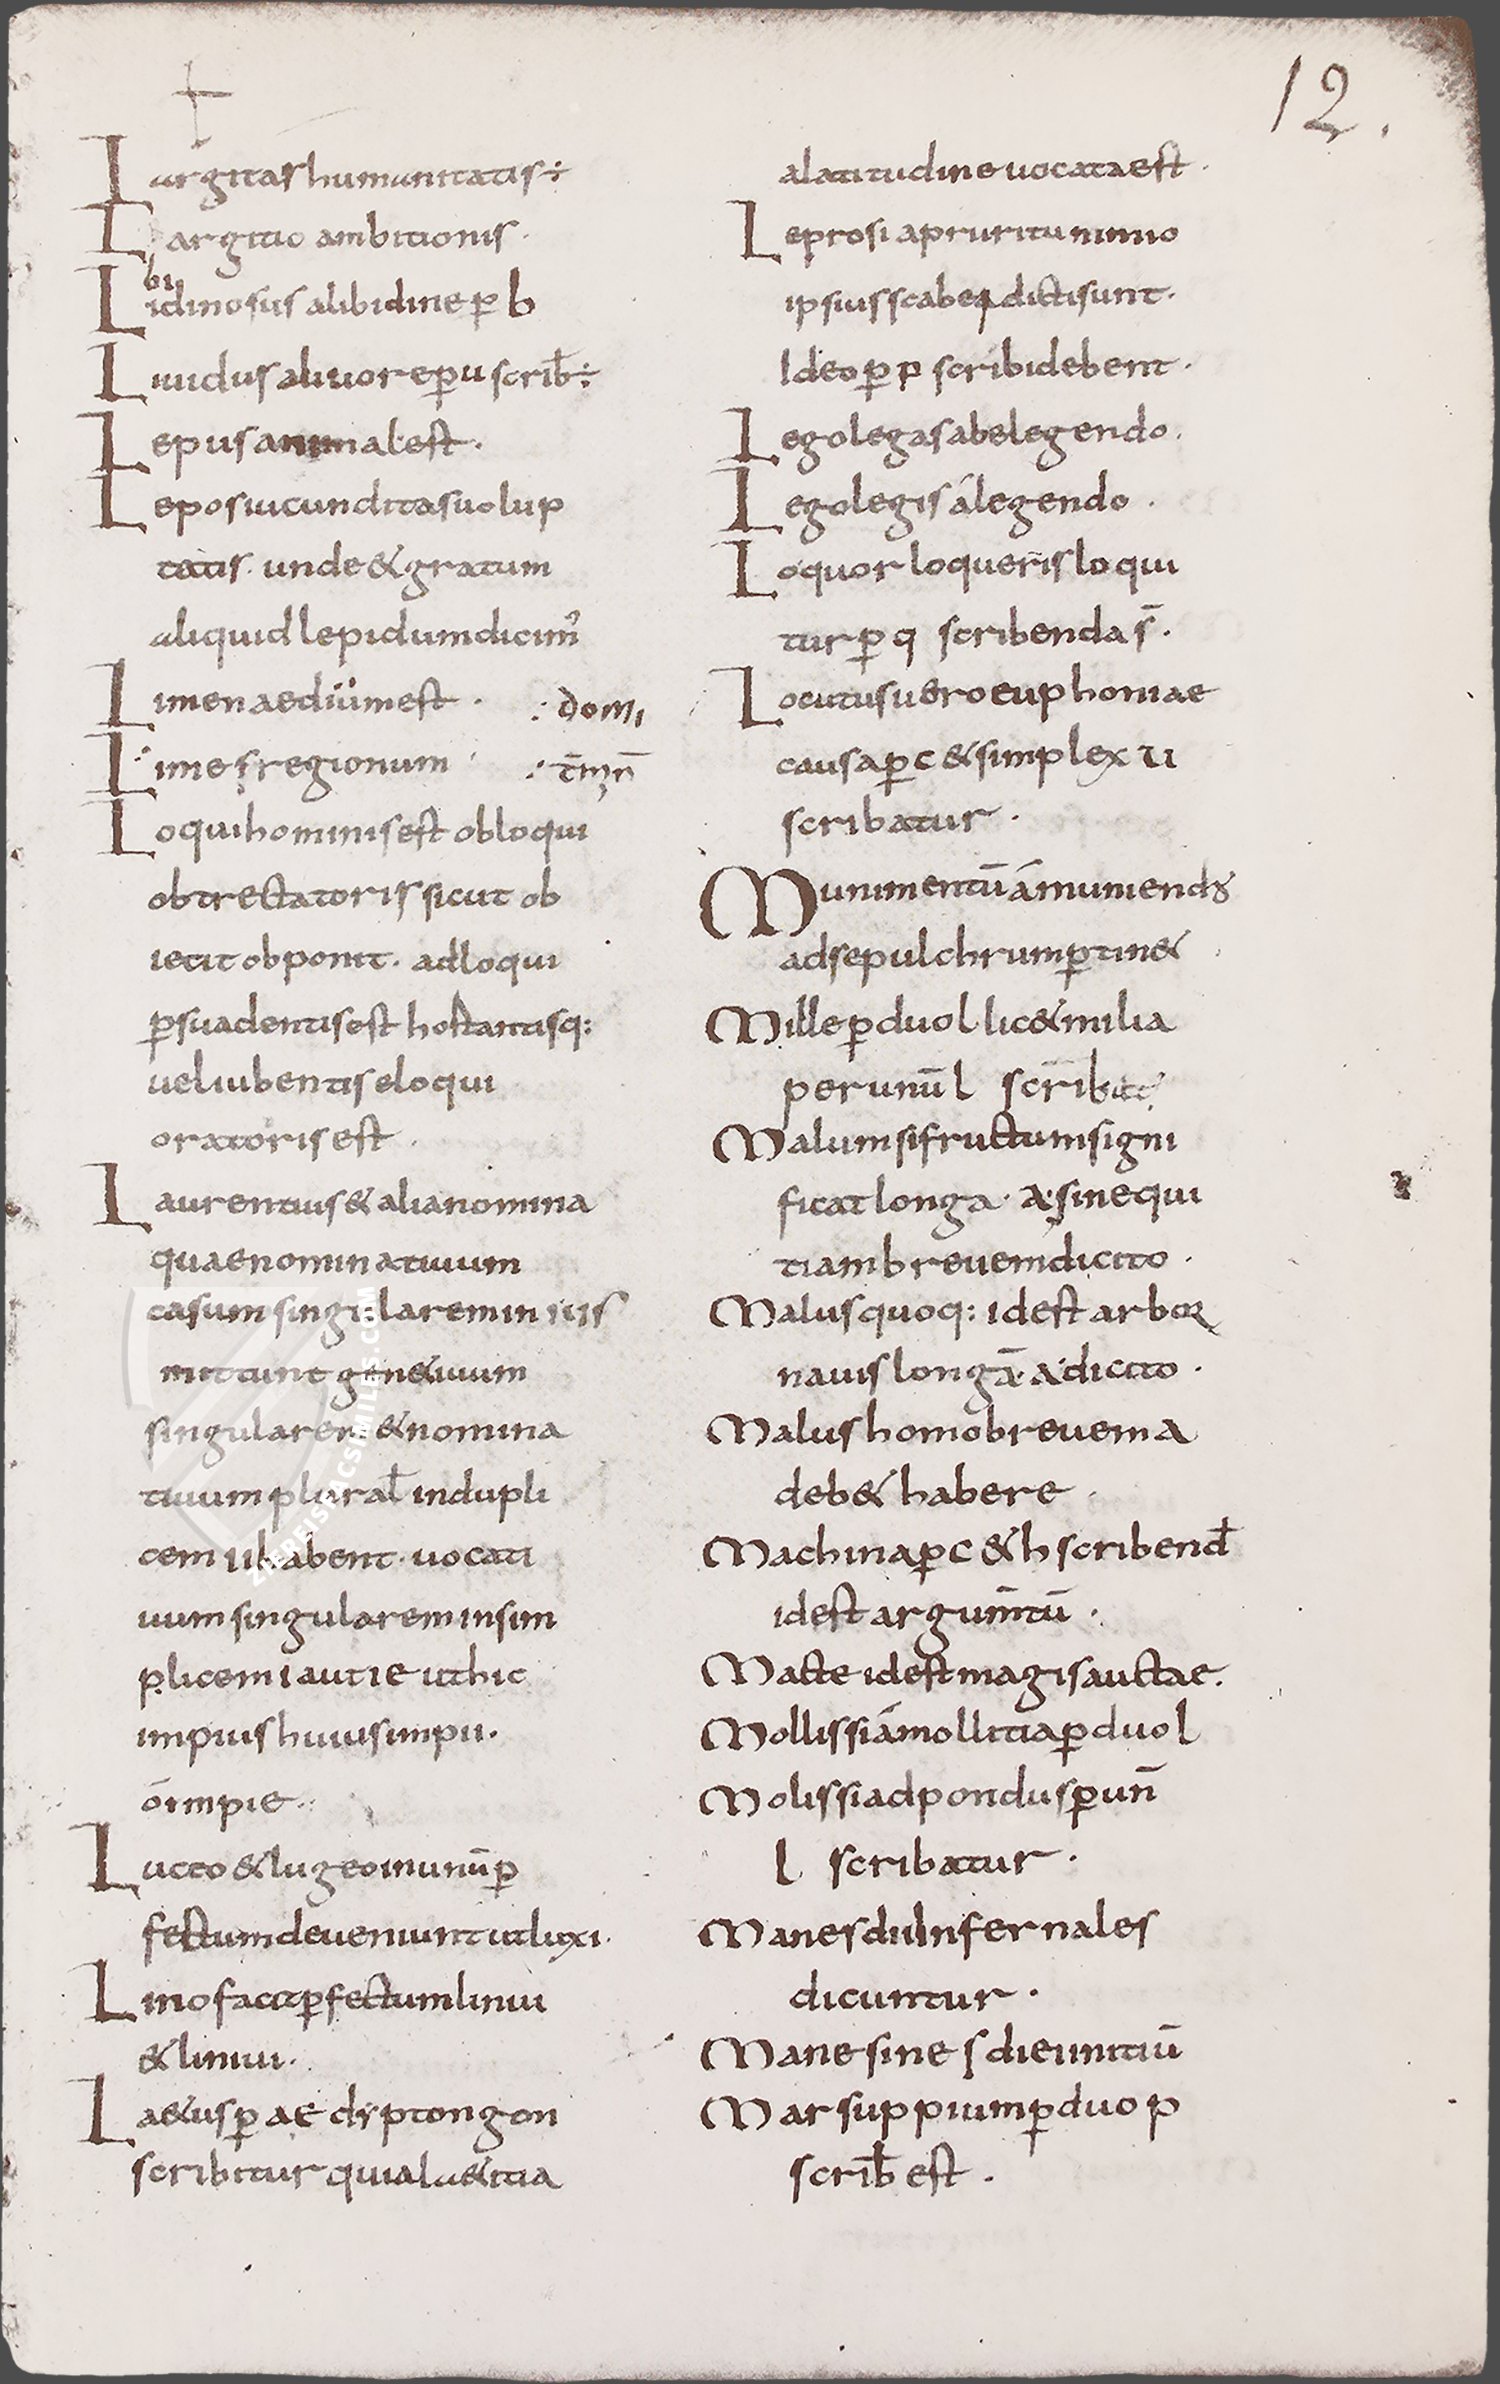 12.
Largitas humanitatis ÷
Largitio ambitionis.
Lidinosus alibidine ꝑ b
bi
Liuidus aliuore ꝑ u scrib̄ ÷
Lepus animal est.
Lepos iucunditas uolup
tatis. unde & gratum
aliquid lepidum dicim᾽
Limen aedium est. ∴ domi
Limes regionum ∴ t̄mn̄
Loqui hominis est obloqui
obtrectatoris sicut ob
iecit obponit. adloqui
ꝑsuadentis est hostantisq:
uel iubentis eloqui
oratoris est.
Laurentius & alia nomina
quae nominatiuum
casum singularem in ius
mittunt gen&iuum
singularem & nomina
tiuum plural̄ in dupli
cem ii habent. uocati
uum singularem in sim
plicem i aut ie ut hic
impius huius impii.
ó impie.
Luceo & lugeo in unū ꝑ
fectum deueniunt ut luxi.
Lino facit ꝑfectum liniui
& liniui.
La&us ꝑ ae dyptongon
scribitur quia la&itia
alatitudine uocata est.
Leprosi a pruritu nimio
ipsius scabeę dicti sunt.
Ideo ꝑ p scribi debent.
Lego legas abelegendo.
Lego legis á legendo.
Loquor loqueris loqui
tur ꝑ q scribenda s̄.
Locutus uero euphoniae
causa ꝑ c & simplex u
scribatur.
Munimentū á muniendo
ad sepulchrum ꝑtin&
Mille ꝑ duo l. lic& milia
per unū l scribat᾽
Malum si fructum signi
ficat longa. a. sin equi
tiam breuem dicito.
Malus quoq: id est arbor
nauis longā. a. dicito.
Malus homo breuem a
deb& habere
Machina ꝑ c & h scribend̄
id est argum̄tū.
Macte id est magis auctae.
Mollissi á mollitia ꝑ duo l
Molissi ad pondus ꝑ un̄
l scribatur.
Manes dii Infernales
dicuntur.
Mane sine s diei initiū
Marsuppium ꝑ duo p
scrib̄ est.
ZIEREISFACSIMILES.COM